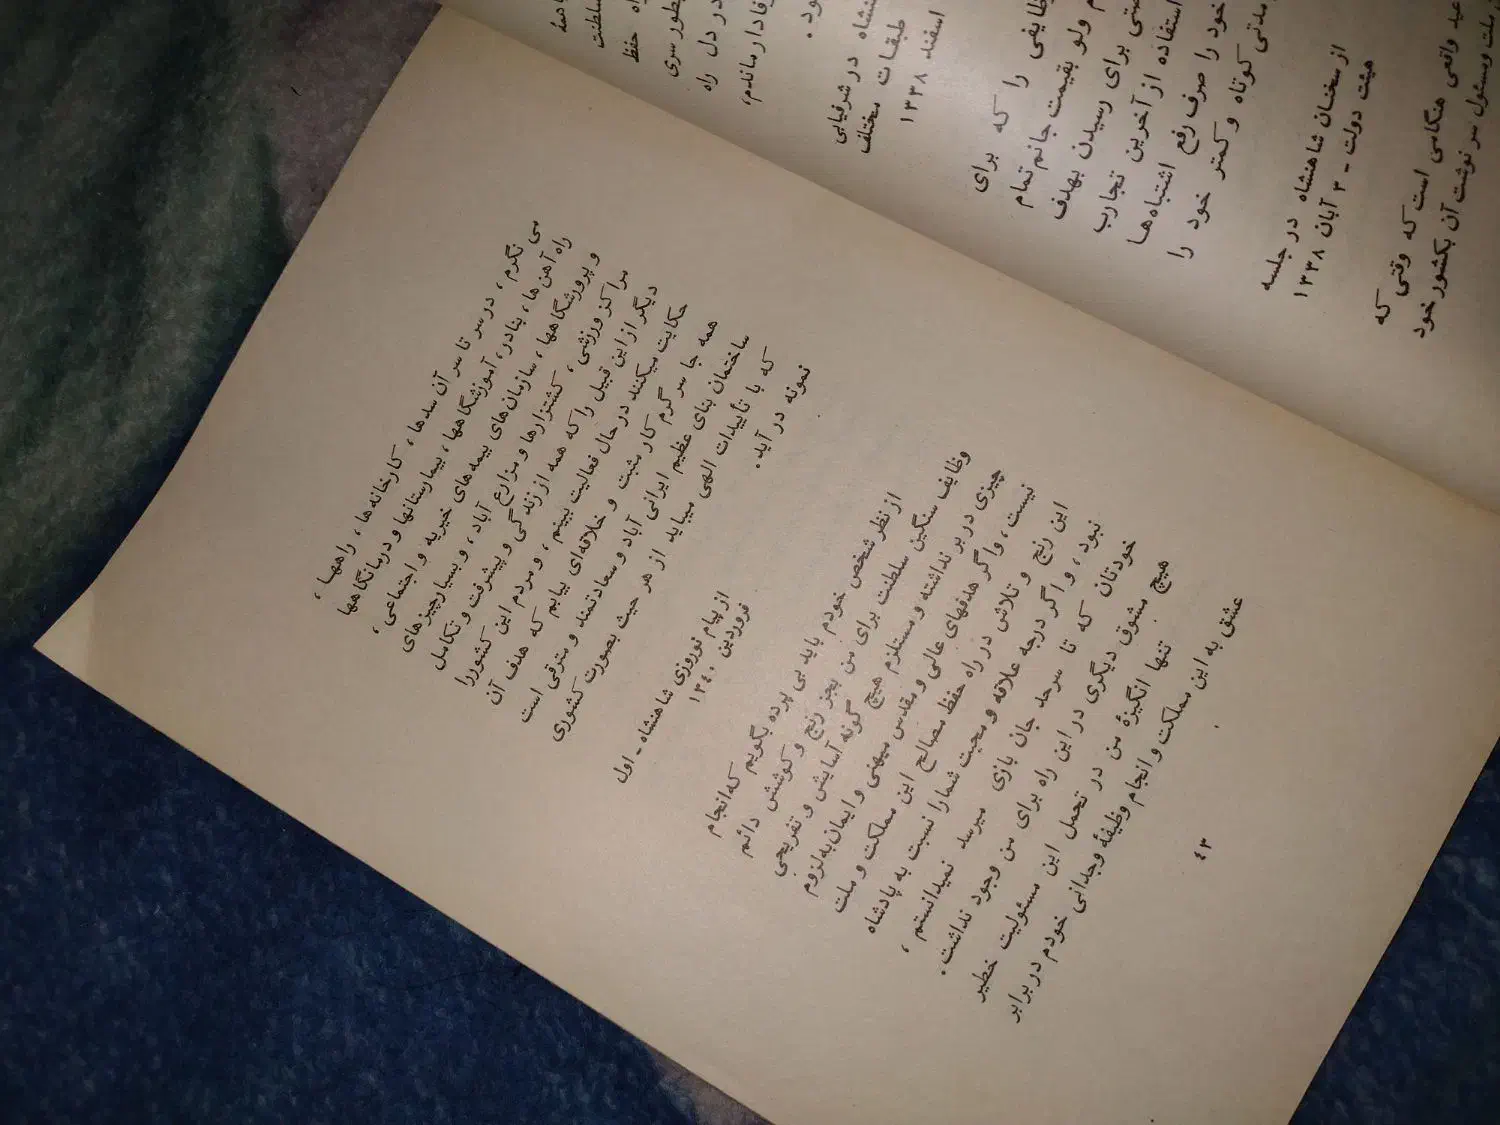 سلطنت
راه حفظ
در دل راه
شاهنشاه در شرفیابی
طبقات مختلف
اسفند ۱۳۳۸
را که برای
ولو بقیمت جانم تمام
برای رسیدن بهدف
استفاده از آخرین تجارب
خود را صرف رفع اشتباه‌ها
مدتی کوتاه و کمتر خود را
از سخنان شاهنشاه در جلسه
هیئت دولت - ۳ آبان ۱۳۳۸
عید واقعی هنگامی است که وقتی که
ملت و مسئول سرنوشت آن بکشور خود
می نگرم ، در سر تا سر آن سدها ، کارخانه‌ها ، راهها ،
راه آهن ها ، بنادر ، آموزشگاهها ، بیمارستانها و درمانگاهها
و پرورشگاهها ، سازمان‌های بیمه‌های خیریه و اجتماعی ،
مراکز ورزشی ، کشتزارها و مزارع آباد ، و بسیار چیزهای
دیگر از این قبیل را که همه از زندگی و پیشرفت و تکامل
حکایت میکنند در حال فعالیت ببینم ، و مردم این کشور را
همه جا سر گرم کار مثبت و خلاقه‌ای بیابم که هدف آن
ساختمان بنای عظیم ایرانی آباد و سعادتمند و مترقی است
که با تأییدات الهی میباید از هر حیث بصورت کشوری
نمونه در آید .
از پیام نوروزی شاهنشاه - اول
فروردین ۱۳۴۰
از نظر شخص خودم باید بی پرده بگویم که انجام
وظایف سنگین سلطنت برای من بجز رنج و کوشش دائم
چیزی در بر نداشته و مستلزم هیچ گونه آسایش و تفریحی
نیست ، و اگر هدفهای عالی و مقدس میهنی و ایمان به لزوم
این رنج و تلاش در راه حفظ مصالح این مملکت و ملت
نبود ، و اگر درجه علاقه و محبت شما را نسبت به پادشاه
خودتان که تا سرحد جان بازی میرسد نمیدانستم ،
هیچ مشوق دیگری در این راه برای من وجود نداشت .
تنها انگیزهٔ من در تحمل این مسئولیت خطیر
عشق به این مملکت و انجام وظیفهٔ وجدانی خودم در برابر
۴۳